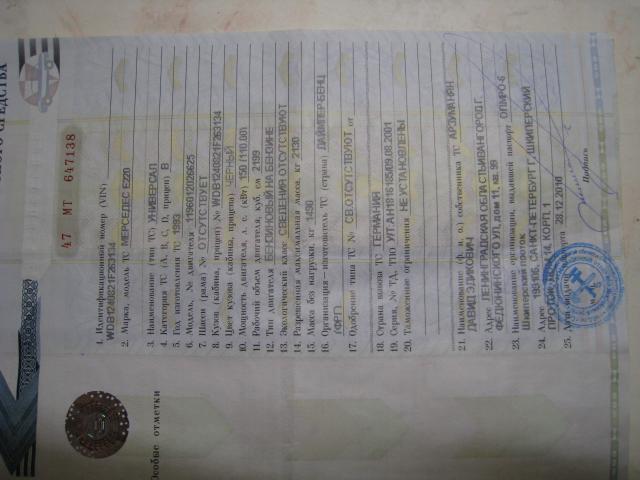 47 МТ 647138
1. Идентификационный номер (VIN)
WDB1240821F263134
2. Марка, модель ТС МЕРСЕДЕС E220
3. Наименование (тип ТС) УНИВЕРСАЛ
4. Категория ТС (А, В, С, D, прицеп) В
5. Год изготовления ТС 1993
6. Модель, № двигателя
7. Шасси (рама) № ОТСУТСТВУЕТ
8. Кузов (кабина, прицеп) № WDB1240821F263134
9. Цвет кузова (кабины, прицепа) ЧЕРНЫЙ
10. Мощность двигателя, л. с. (кВт) 150 (110.00)
11. Рабочий объем двигателя, куб. см 2199
12. Тип двигателя БЕНЗИНОВЫЙ НА БЕНЗИНЕ
13. Экологический класс СВЕДЕНИЯ ОТСУТСТВУЮТ
14. Разрешенная максимальная масса, кг 2130
15. Масса без нагрузки, кг 1490
16. Организация—изготовитель ТС (страна) ДАЙМЛЕР-БЕНЦ
(ФРГ)
17. Одобрение типа ТС № СВ.ОТСУТСТВУЮТ от
18. Страна вывоза ТС ГЕРМАНИЯ
19. Серия, № ТД, ТПО
20. Таможенные ограничения НЕ УСТАНОВЛЕНЫ
21. Наименование (ф. и. о.) собственника ТС АРЗУМАНЯН
ДАВИД ЭДИКОВИЧ
22. Адрес ЛЕНИНГРАДСКАЯ ОБЛАСТЬ ИВАНГОРОД Г.
ФЕДЮНИНСКОГО УЛ, дом 11, кв. 99
23. Наименование организации, выдавшей паспорт ОП МРО-6
Шкиперский проток
24. Адрес 199106, САНКТ-ПЕТЕРБУРГ Г, ШКИПЕРСКИЙ
ПРОТОК, 14, КОРП. 1
25. Дата выдачи паспорта 28.12.2010
Подпись
Особые отметки